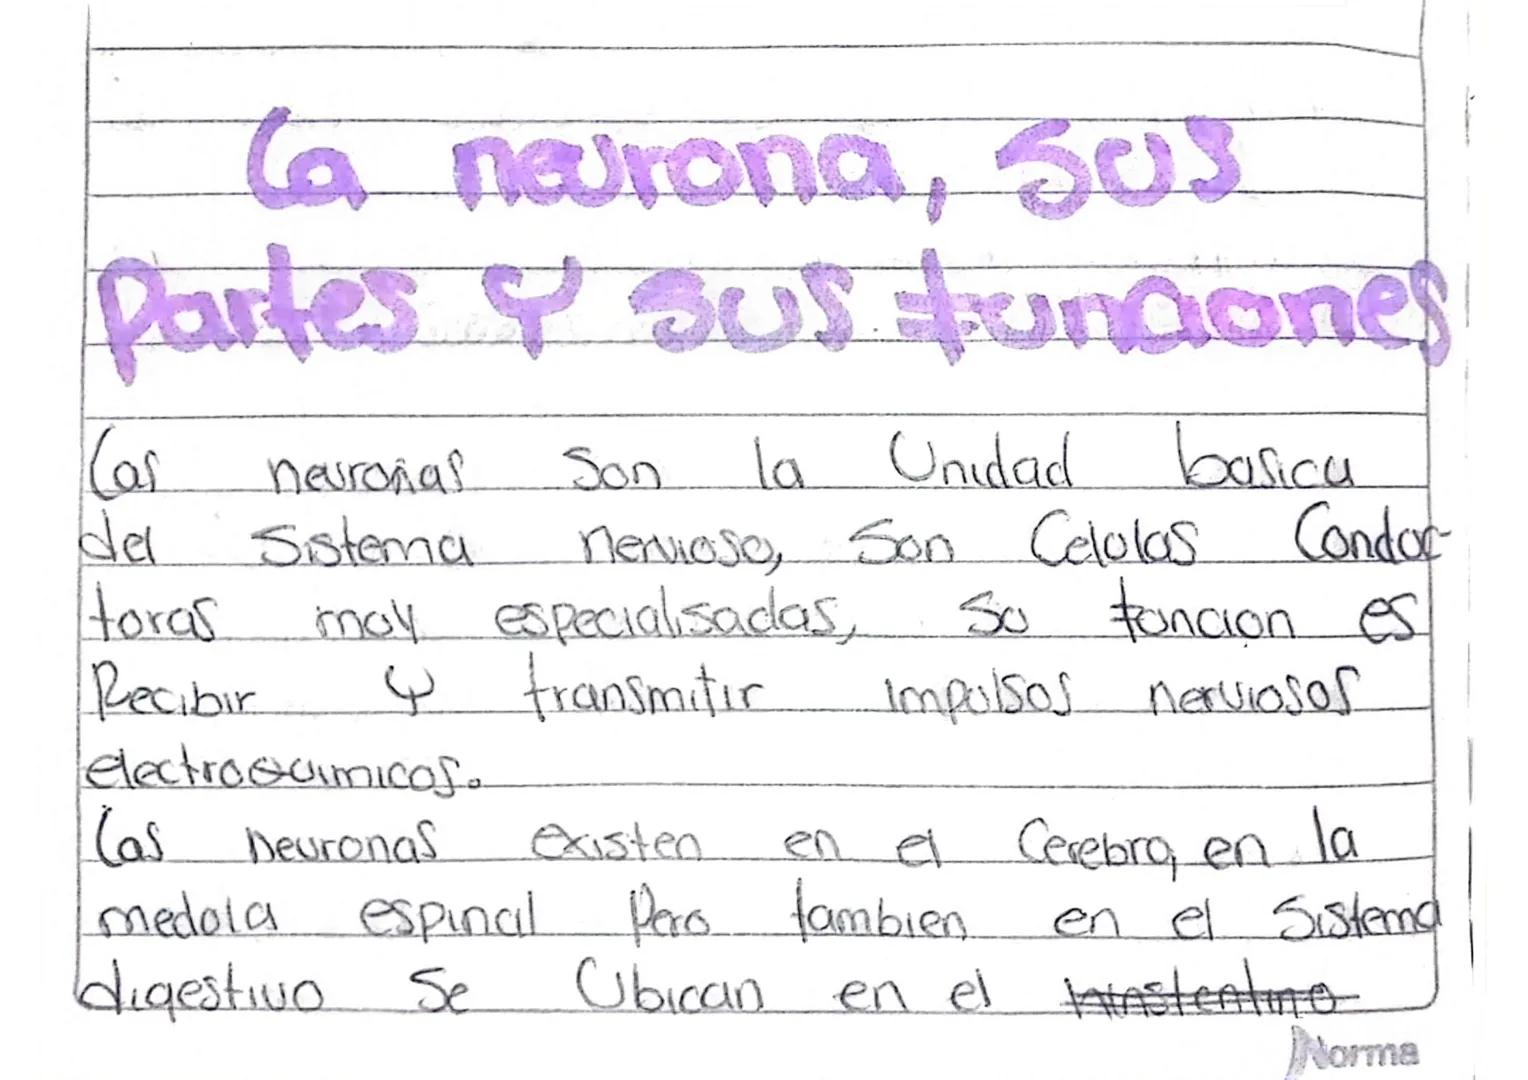 La neurona, sus
Partes y sus funciones
Las neuronas son la Unidad basica
del Sistema nervioso, son Celulas Conduc-
toras muy especialisadas, su funcion es
Recibir y transmitir impulsos nerviosos
electroquimicos.
Las Neuronas existen en el Cerebro, en la
medula espinal Pero tambien en el Sistema
digestivo Se Ubican en el
Norma